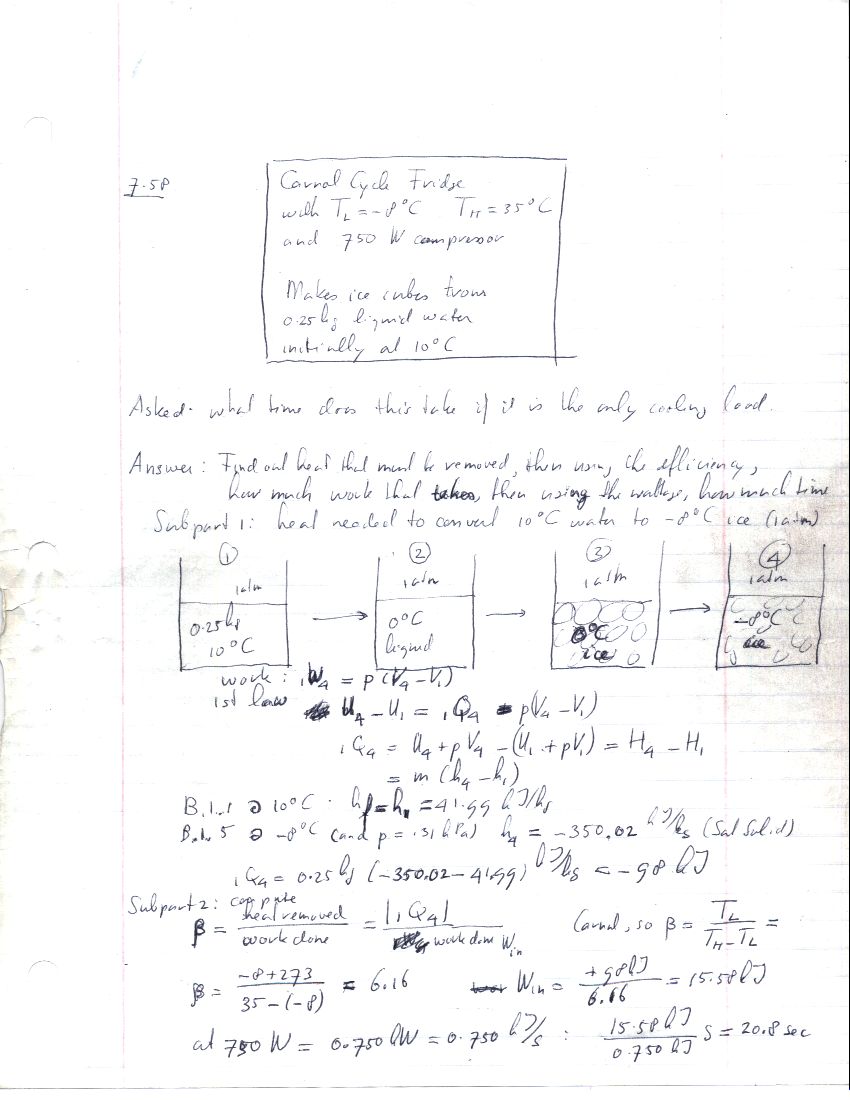 7.58
Carnot Cycle Fridge
with T_L = -8°C T_H = 35°C
and 750 W compressor
Makes ice cubes from
0.25 kg liquid water
initially at 10°C
Asked: what time does this take if it is the only cooling load.
Answer: Find out heat that must be removed, then using the efficiency,
how much work that takes, then using the wattage, how much time
Subpart 1: heat needed to convert 10°C water to -8°C ice (1atm)
① ② ③ ④
1atm 1atm 1atm 1atm
0.25 kg 0°C 0°C -8°C
10°C liquid ice ice
work: ₁W₄ = p(V₄ - V₁)
1st law U₄ - U₁ = ₁Q₄ - p(V₄ - V₁)
₁Q₄ = U₄ + pV₄ - (U₁ + pV₁) = H₄ - H₁
= m (h₄ - h₁)
B.1.1 @ 10°C: h_f = h₁ = 41.99 kJ/kg
B.1.5 @ -8°C (and p = .31 kPa) h₄ = -350.02 kJ/kg (Sat Solid)
₁Q₄ = 0.25 kg (-350.02 - 41.99) kJ/kg = -98 kJ
Subpart 2: compute
β = heat removed / work done = |₁Q₄| / work done W_in Carnot, so β = T_L / (T_H - T_L) =
β = (-8+273) / (35-(-8)) = 6.16 W_in = +98kJ / 6.16 = 15.58 kJ
at 750 W = 0.750 kW = 0.750 kJ/s : 15.58 kJ / 0.750 kJ s = 20.8 sec